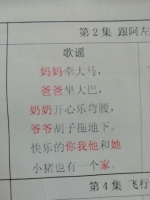 第2集 跟阿左
歌谣
妈妈牵大马，
爸爸坐大巴，
奶奶开心乐弯腰，
爷爷胡子拖地下。
快乐的你我他和她
小猪也有一个家。
第4集 飞行